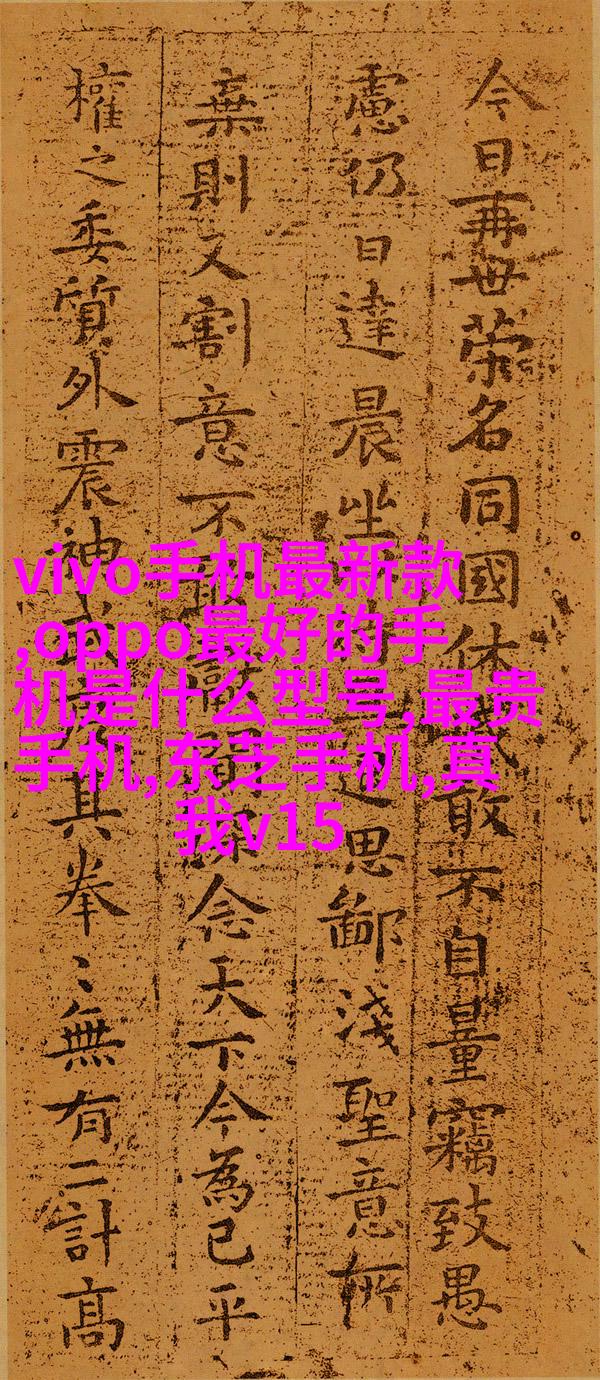 今日再世荣名同國休敢不自量竊致愚
慮仍日達晨坐思鄙淺聖意所
棄則又割意不念天下今為已平
權之委質外震神其拳〻無有二計高
vivo手机最新款
,oppo最好的手
机是什么型号,最贵
手机,东芝手机,真
我v15